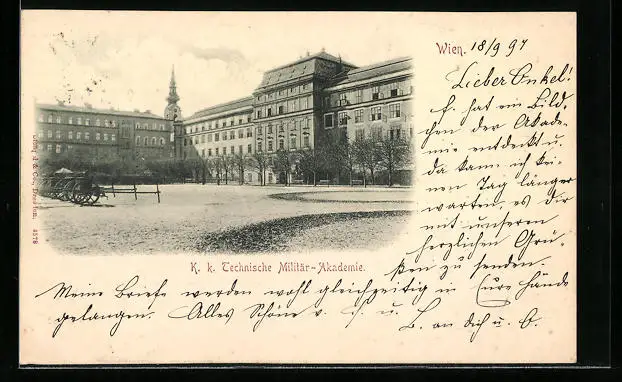 Wien. 18/9 97
Lieber Onkel!
F. hat ein Bild-
chen der Akade-
mie entdeckt u.
da kann ich kei-
nen Tag länger
warten, es dir
mit unseren
herzlichen Grü-
ßen zu senden.
K. k. Technische Militär-Akademie.
Meine Briefe werden wohl gleichzeitig in Eure Hände
gelangen. Alles Schöne v. F. u. B. an dich u. E.